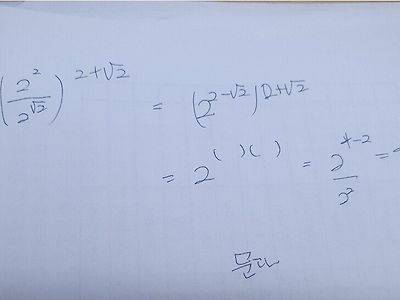 (2²/2^√2)^2+√2 = (2^2-√2)^2+√2
= 2^( )( ) = 2^4-2/2² =
문과